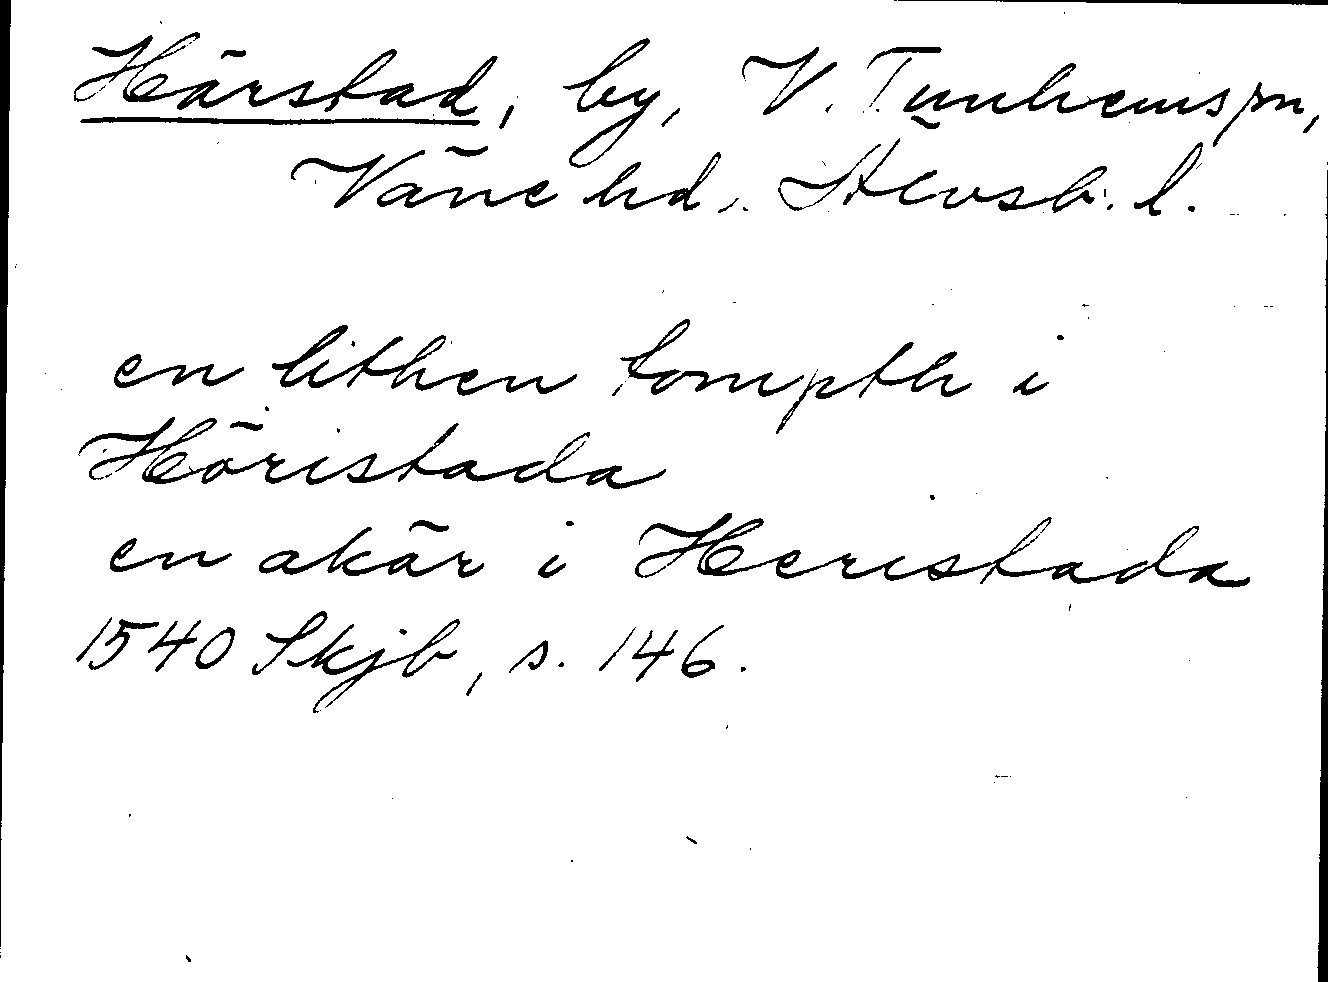 Härstad, by, V. Tunhems sn,
Väne hd. Älvsb. l.
en lithen tompth i
Höristada
en akär i Heristada
1540 Skjb, s. 146.